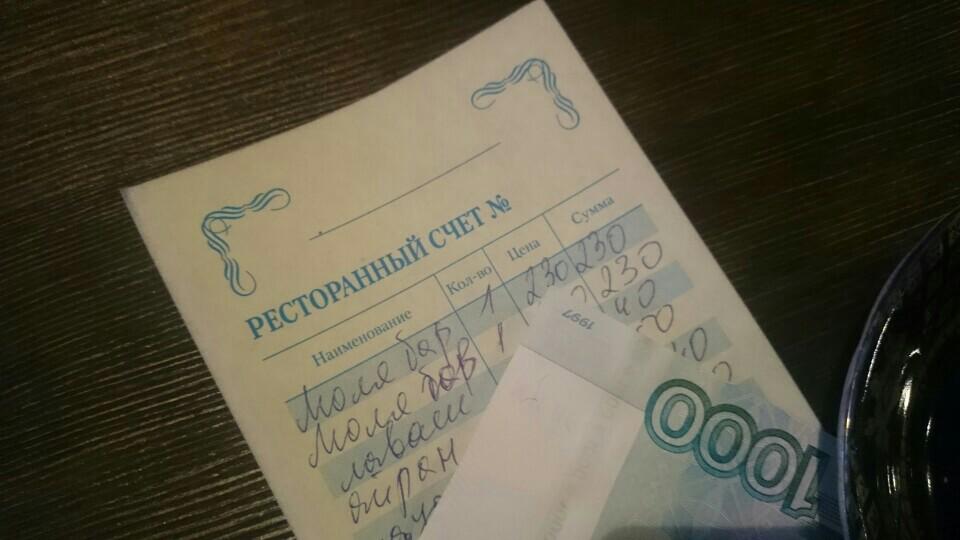 РЕСТОРАННЫЙ СЧЕТ №
Наименование Кол-во Цена Сумма
Моля бар 1 230 230
Моля 1 230
лаваш 40
айран
1997
1000